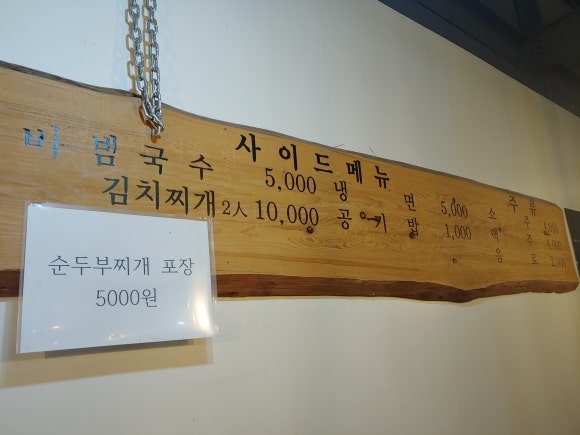 사이드메뉴 주류
비빔국수 5,000 냉면 5,000 소주
김치찌개 2人 10,000 공기밥 1,000 맥주
음료
순두부찌개 포장
5000원